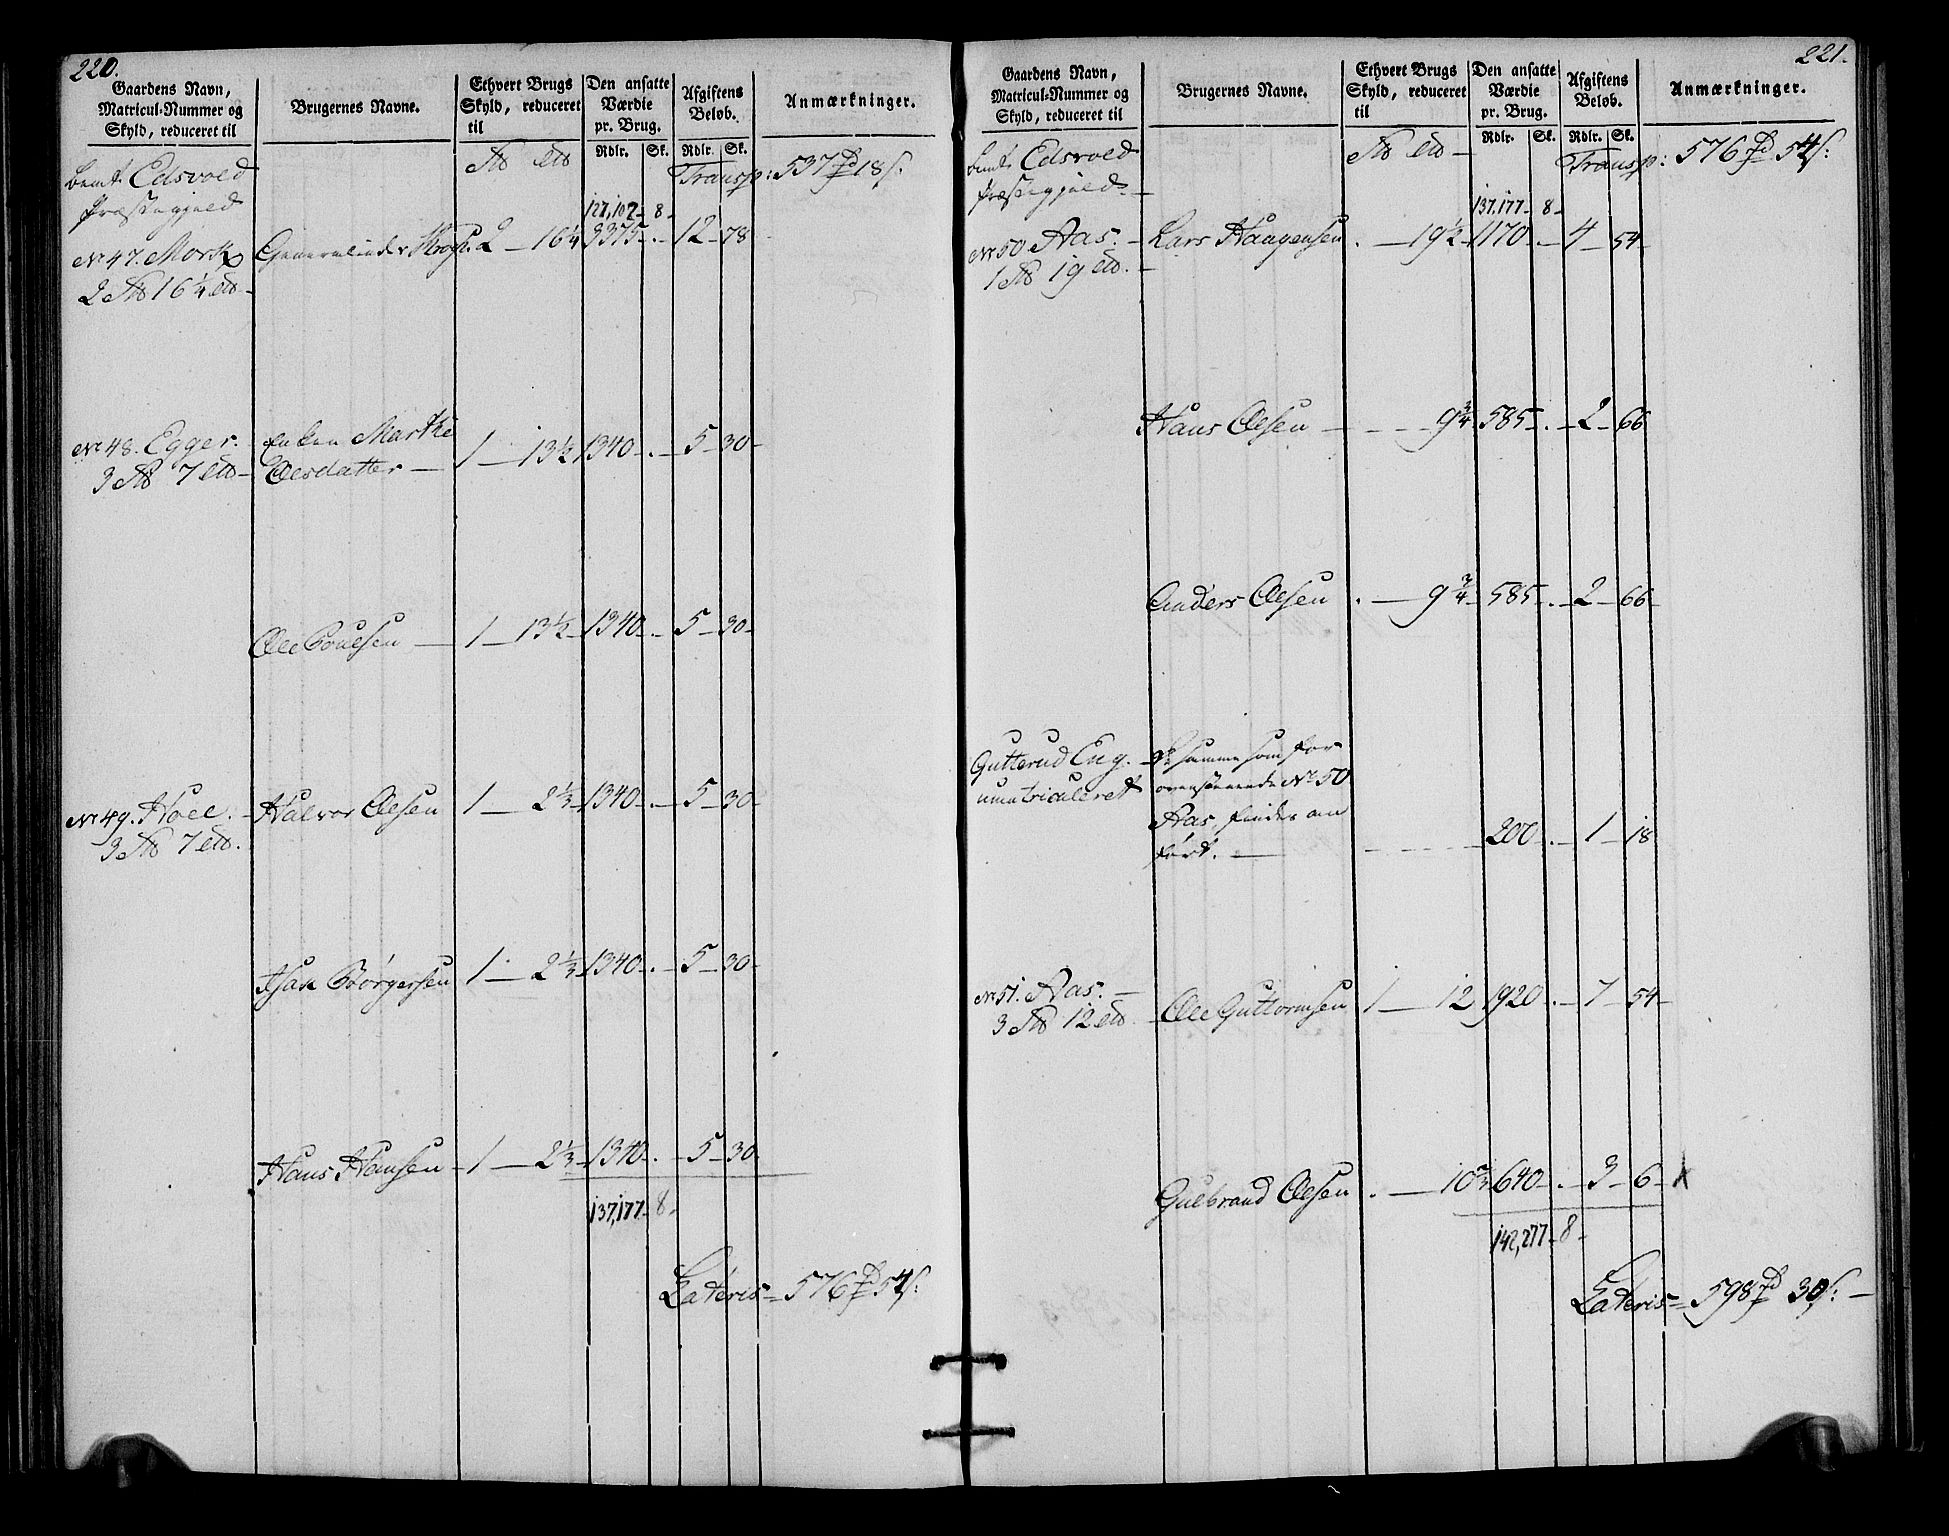 220.
Gaardens Navn,
Matricul-Nummer og
Skyld, reduceret til
Brugernes Navne.
Ethvert Brugs
Skyld, reduceret
til
Den ansatte
Værdie
pr. Brug.
Rdlr. Sk.
Afgiftens
Beløb.
Rdlr. Sk.
Anmærkninger.
Edsvold
Præstegjeld
Transp: 537 18
127,102 - 8 -
No 47. Mork
2 16 1/4 2 - 16 1/4 3375 - . - 12 - 78
No 48. Egger.
3 7
Enken Marthe
Olesdatter - 1 - 13 1/2 1340 - . - 5 - 30 -
Ole Poulsen - 1 - 13 1/2 - 1340 - . - 5 - 30 -
No 49. Hoel. - Halvor Olesen 1 - 2 1/3 - 1340 - . - 5 - 30 -
3 7
Isak Børgersen 1 - 2 1/3 - 1340 - . - 5 - 30 -
Hans Hansen - 1 - 2 1/3 - 1340 - . - 5 - 30 -
137,177 - 8 -
Lateris = 576 54
221.
Gaardens Navn,
Matricul-Nummer og
Skyld, reduceret til
Brugernes Navne.
Ethvert Brugs
Skyld, reduceret
til
Den ansatte
Værdie
pr. Brug.
Rdlr. Sk.
Afgiftens
Beløb.
Rdlr. Sk.
Anmærkninger.
Edsvold
Præstegjeld -
Transp: 576 54
137,177 - 8 -
No 50 Aas. - Lars Haagensen . - 19 1/2 - 1170 - . - 4 - 54 -
1 19
Hans Olesen - - - 9 3/4 585 - . - 2 - 66
Anders Olesen . - 9 3/4 - 585 - . - 2 - 66 -
Gutterud Eng. -
umatriculeret
De samme som for
ovenstaaende No 50
Aas, findes an
ført. - 200 - . - 1 - 18
No 51. Aas. -
3 12 - Ole Guttormsen 1 - 12 1920 - . - 7 - 54 -
Gulbrand Olesen . - 10 2/3 640 - . - 3 - 6 -
142,277 - 8 -
Lateris = 598 30